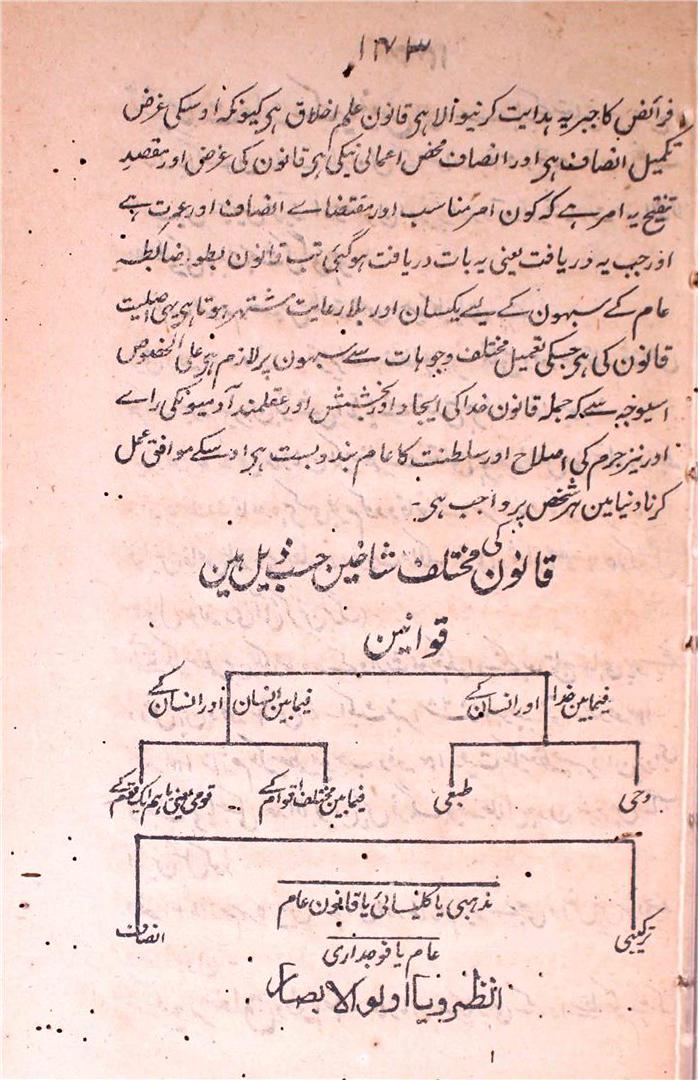 ۱۷۳
فرائض کا جبریہ ہدایت کرنیوالا ہی قانون علم اخلاق ہی کیونکہ اوسکی غرض
تکمیل انصاف ہی اور انصاف محض اعمالی نیکی ہی قانون کی غرض اور مقصد
تنقیح یہ امر ہے کہ کون امر مناسب اور مقتضاے انصاف اور عبرت ہے
اور جب یہ دریافت یعنی یہ بات دریافت ہوگئی تب قانون بطور ضابطہ
عام کے سبہون کے لیے یکسان اور بلا رعایت مشتہر ہوتا ہی یہی اصلیت
قانون کی ہی جسکی تعمیل مختلف وجوہات سے سبہون پر لازم ہی علی الخصوص
اسیوجہ سے کہ جملہ قانون خدا کی ایجاد اور بخشش اور عقلمند آدمیونکی راے
اور نیز جرم کی اصلاح اور سلطنت کا عام بندوبست ہی اوسکے موافق عمل
کرنا دنیا مین ہر شخص پر واجب ہی۔
قانون کی مختلف شاخین حسب ذیل ہین
قوانین
فیما بین خدا اور انسان کے فیما بین انسان اور انسان کے
وحی طبعی فیما بین مختلف اقوام کے قومی یعنی باہم ایک قوم کے
مذہبی یا کلیسائی یا قانون عام
ترکیبی انصاف
عام یا فوجداری
انظروا یا اولو الابصار
۱